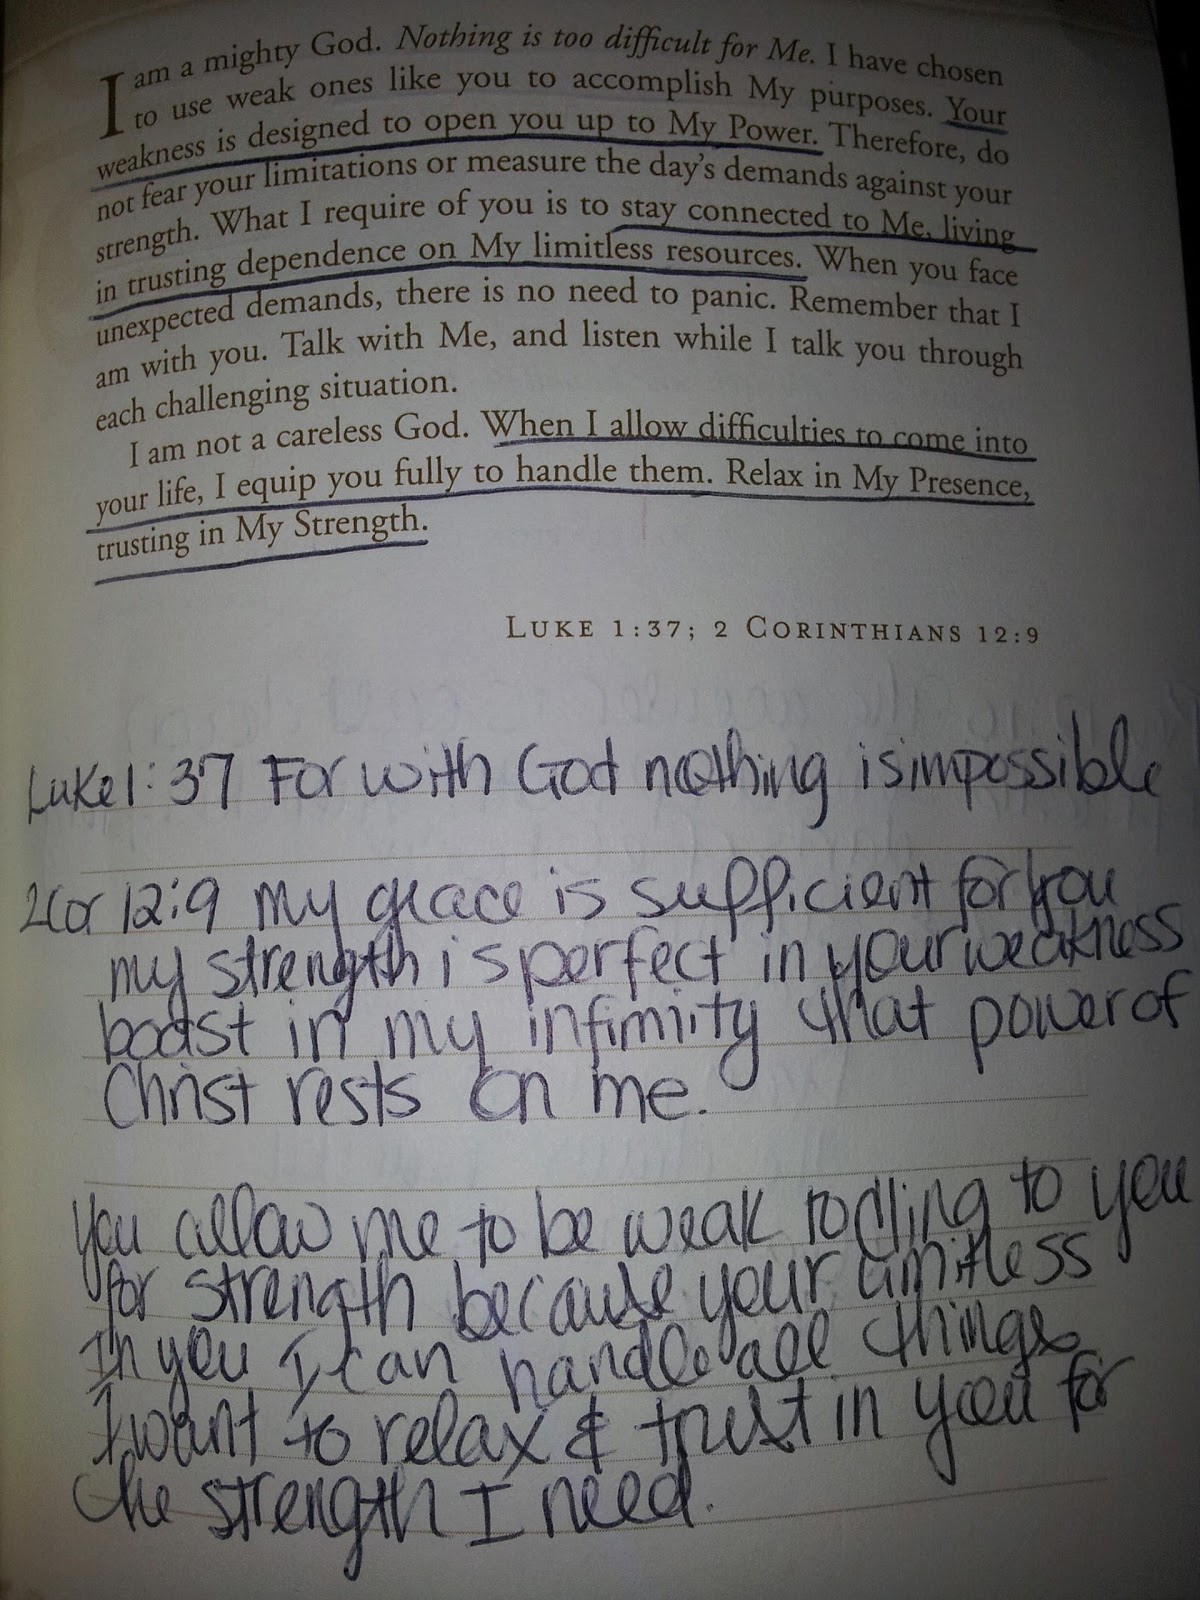 I am a mighty God. Nothing is too difficult for Me. I have chosen
to use weak ones like you to accomplish My purposes. Your
weakness is designed to open you up to My Power. Therefore, do
not fear your limitations or measure the day's demands against your
strength. What I require of you is to stay connected to Me, living
in trusting dependence on My limitless resources. When you face
unexpected demands, there is no need to panic. Remember that I
am with you. Talk with Me, and listen while I talk you through
each challenging situation.
I am not a careless God. When I allow difficulties to come into
your life, I equip you fully to handle them. Relax in My Presence,
trusting in My Strength.
LUKE 1:37; 2 CORINTHIANS 12:9
Luke 1:37 For with God nothing is impossible
2Cor 12:9 my grace is sufficient for you
my strength is perfect in your weakness
boast in my infimity that power of
Christ rests on me.
You allow me to be weak to cling to you
for strength because your limitless
In you I can handle all things
I want to relax & trust in you for
the strength I need.